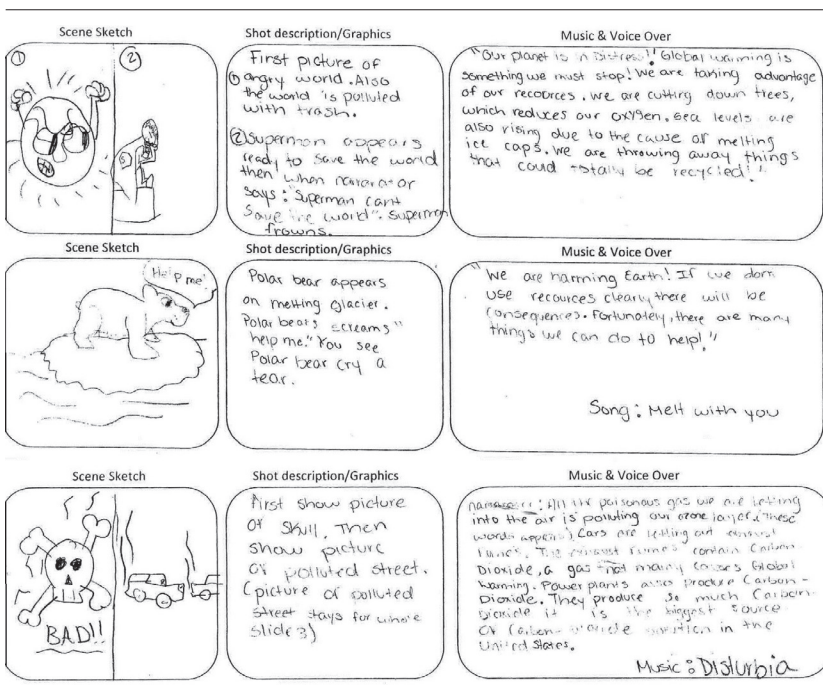 Scene Sketch
Shot description/Graphics
Music & Voice Over
①
②
First picture of
① angry world. Also
the world is polluted
with trash.
② Superman appears
ready to save the world
then when narorator
says: "Superman cant
Save the world". Superman
frowns.
"Our planet is in distress!! Global warming is
something we must stop! We are taking advantage
of our recources. We are cutting down trees,
which reduces our oxygen. sea levels are
also rising due to the cause of melting
ice caps. We are throwing away things
that coud totally be recycled!"
Scene Sketch
Shot description/Graphics
Music & Voice Over
Help me!
Polar bear appears
on melting glacier.
Polar bears screams "
help me." You see
Polar bear cry a
tear.
"We are harming Earth! If we dont
use recources clearly, there will be
consequences. Fortunately, there are many
things we can do to help!"
Song: Melt with you
Scene Sketch
Shot description/Graphics
Music & Voice Over
BAD!!
First show picture
of skull, Then
show picture
of polluted street.
(picture of polluted
street stays for whole
slide 3)
: All the poisonous gas we are letting
into the air is polluting our ozone layer. (These
words appear) Cars are letting out exhaust
fumes. The exhaust fumes contain Carbon-
Dioxide, a gas that mainly causes Global
Warming. Power plants also produce Carbon-
Dioxide. They produce so much Carbon-
Dioxide it is the biggest source
of Carbon-Dioxide in the
United States.
Music: Disturbia